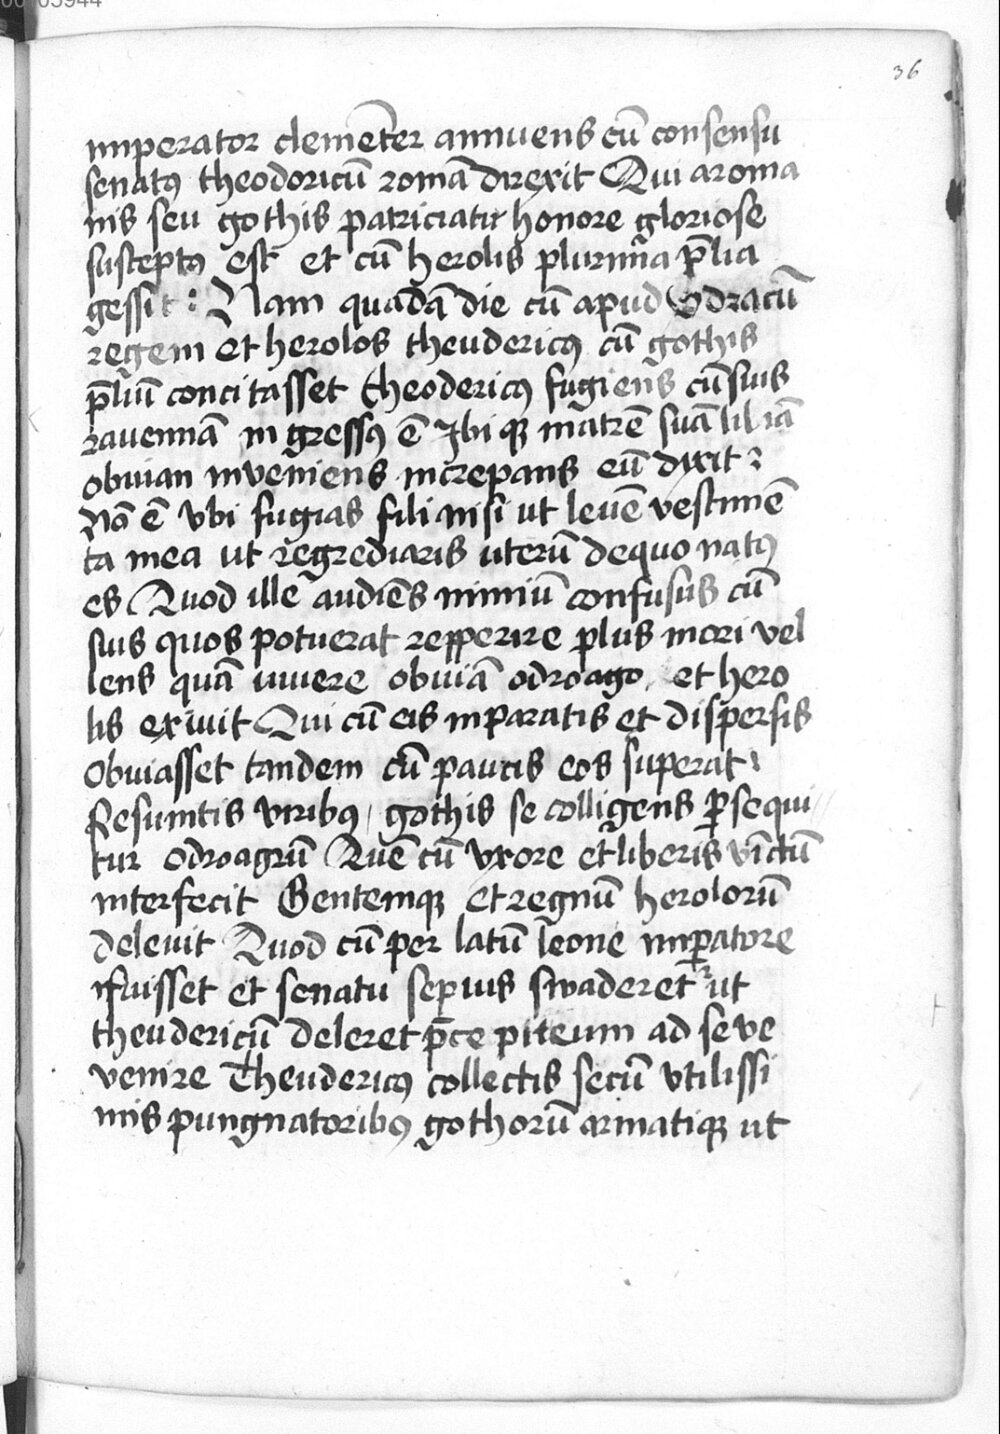 36
imperator clemēter annuens cū consensu
senatꝰ theodoricū romā direxit Qui a roma
nis seu gothis patriciatu honore gloriose
susceptꝰ est et cū herolis plurima p̄lia
gessit : Nam quadā die cū apud Odracū
regem et herolos theudericꝰ cū gothis
p̄liū concitasset theodericꝰ fugiens cū suis
ravennā in gressꝰ ē Ibi qꝫ matrē suā liliā
obvian inveniens increpans eū dixit :
Nō ē vbi fugias fili nisi ut levē vestimē
ta mea ut regrediaris uterū de quo natꝰ
es Quod ille audiēs nimiū confusus cū
suis quos potuerat repperire plus mori vel
lens quā vivere obviā odroago et hero
lis exivit Qui cū eis inparatis et dispersis
obviasset tandem cū paucis eos superat
Resumtis viribꝰ gothis se colligens p̱sequi
tur Odroagrū Quē cū vxore et liberis vīctū
interfecit Gentemqꝫ et regnū herolorū
delevit Quod cū per latū leone imp̱atore
ifuisset et senatu sepius swaderetᷣ ut
theudericū deleret p̄cepit eum ad se ve
venire Theudericꝰ collectis secū vtilissi
mis pungnatoribꝰ gothorū armatiqꝫ ut